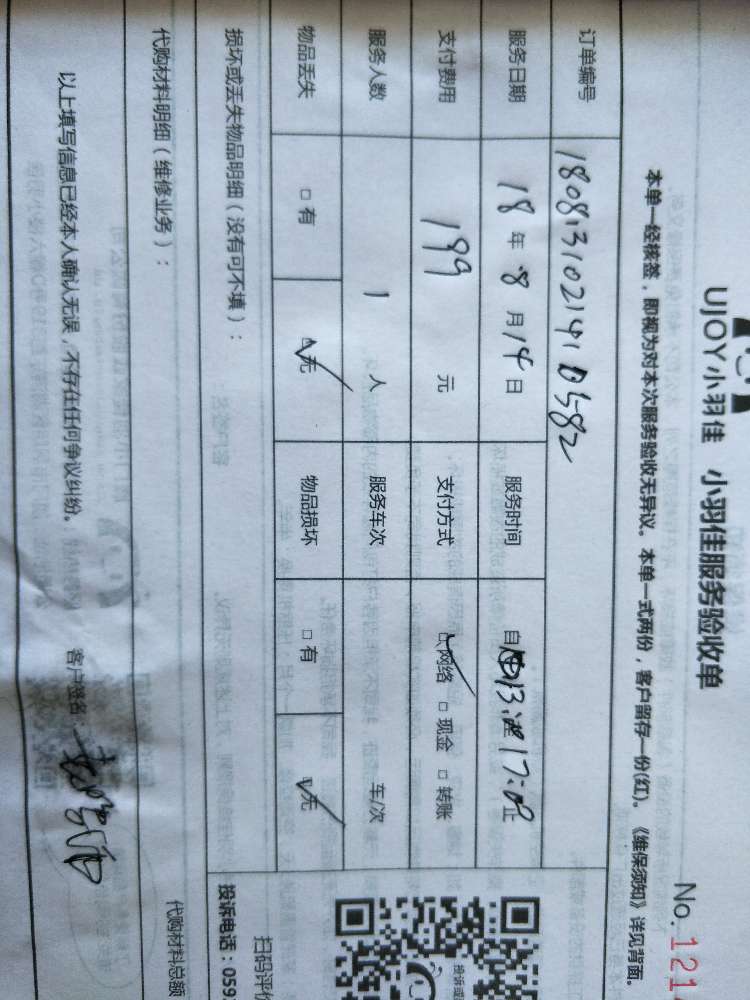 UJOY小羽佳 小羽佳服务验收单
No. 121
本单一经核签，即视为对本次服务验收无异议。本单一式两份，客户留存一份(红)。《维保须知》详见背面。
订单编号
服务日期 18 年 8 月 14 日 服务时间 自 13:00 17:00 止
支付费用 199 元 支付方式 ☑网络 □现金 □转账
服务人数 1 人 服务车次 车/次
物品丢失 □有 ☑无 物品损坏 □有 ☑无
损坏或丢失物品明细（没有可不填）：
扫码评价
投诉电话：059
代购材料明细（维修业务）： 代购材料总额
以上填写信息已经本人确认无误，不存在任何争议纠纷。 客户签名